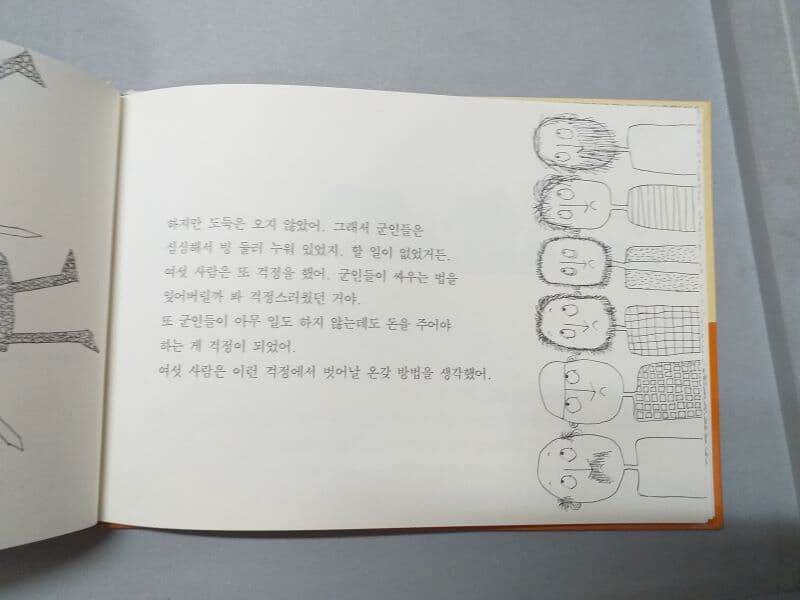 하지만 도둑은 오지 않았어. 그래서 군인들은
심심해서 빙 둘러 누워 있었지. 할 일이 없었거든.
여섯 사람은 또 걱정을 했어. 군인들이 싸우는 법을
잊어버릴까 봐 걱정스러웠던 거야.
또 군인들이 아무 일도 하지 않는데도 돈을 주어야
하는 게 걱정이 되었어.
여섯 사람은 이런 걱정에서 벗어날 온갖 방법을 생각했어.